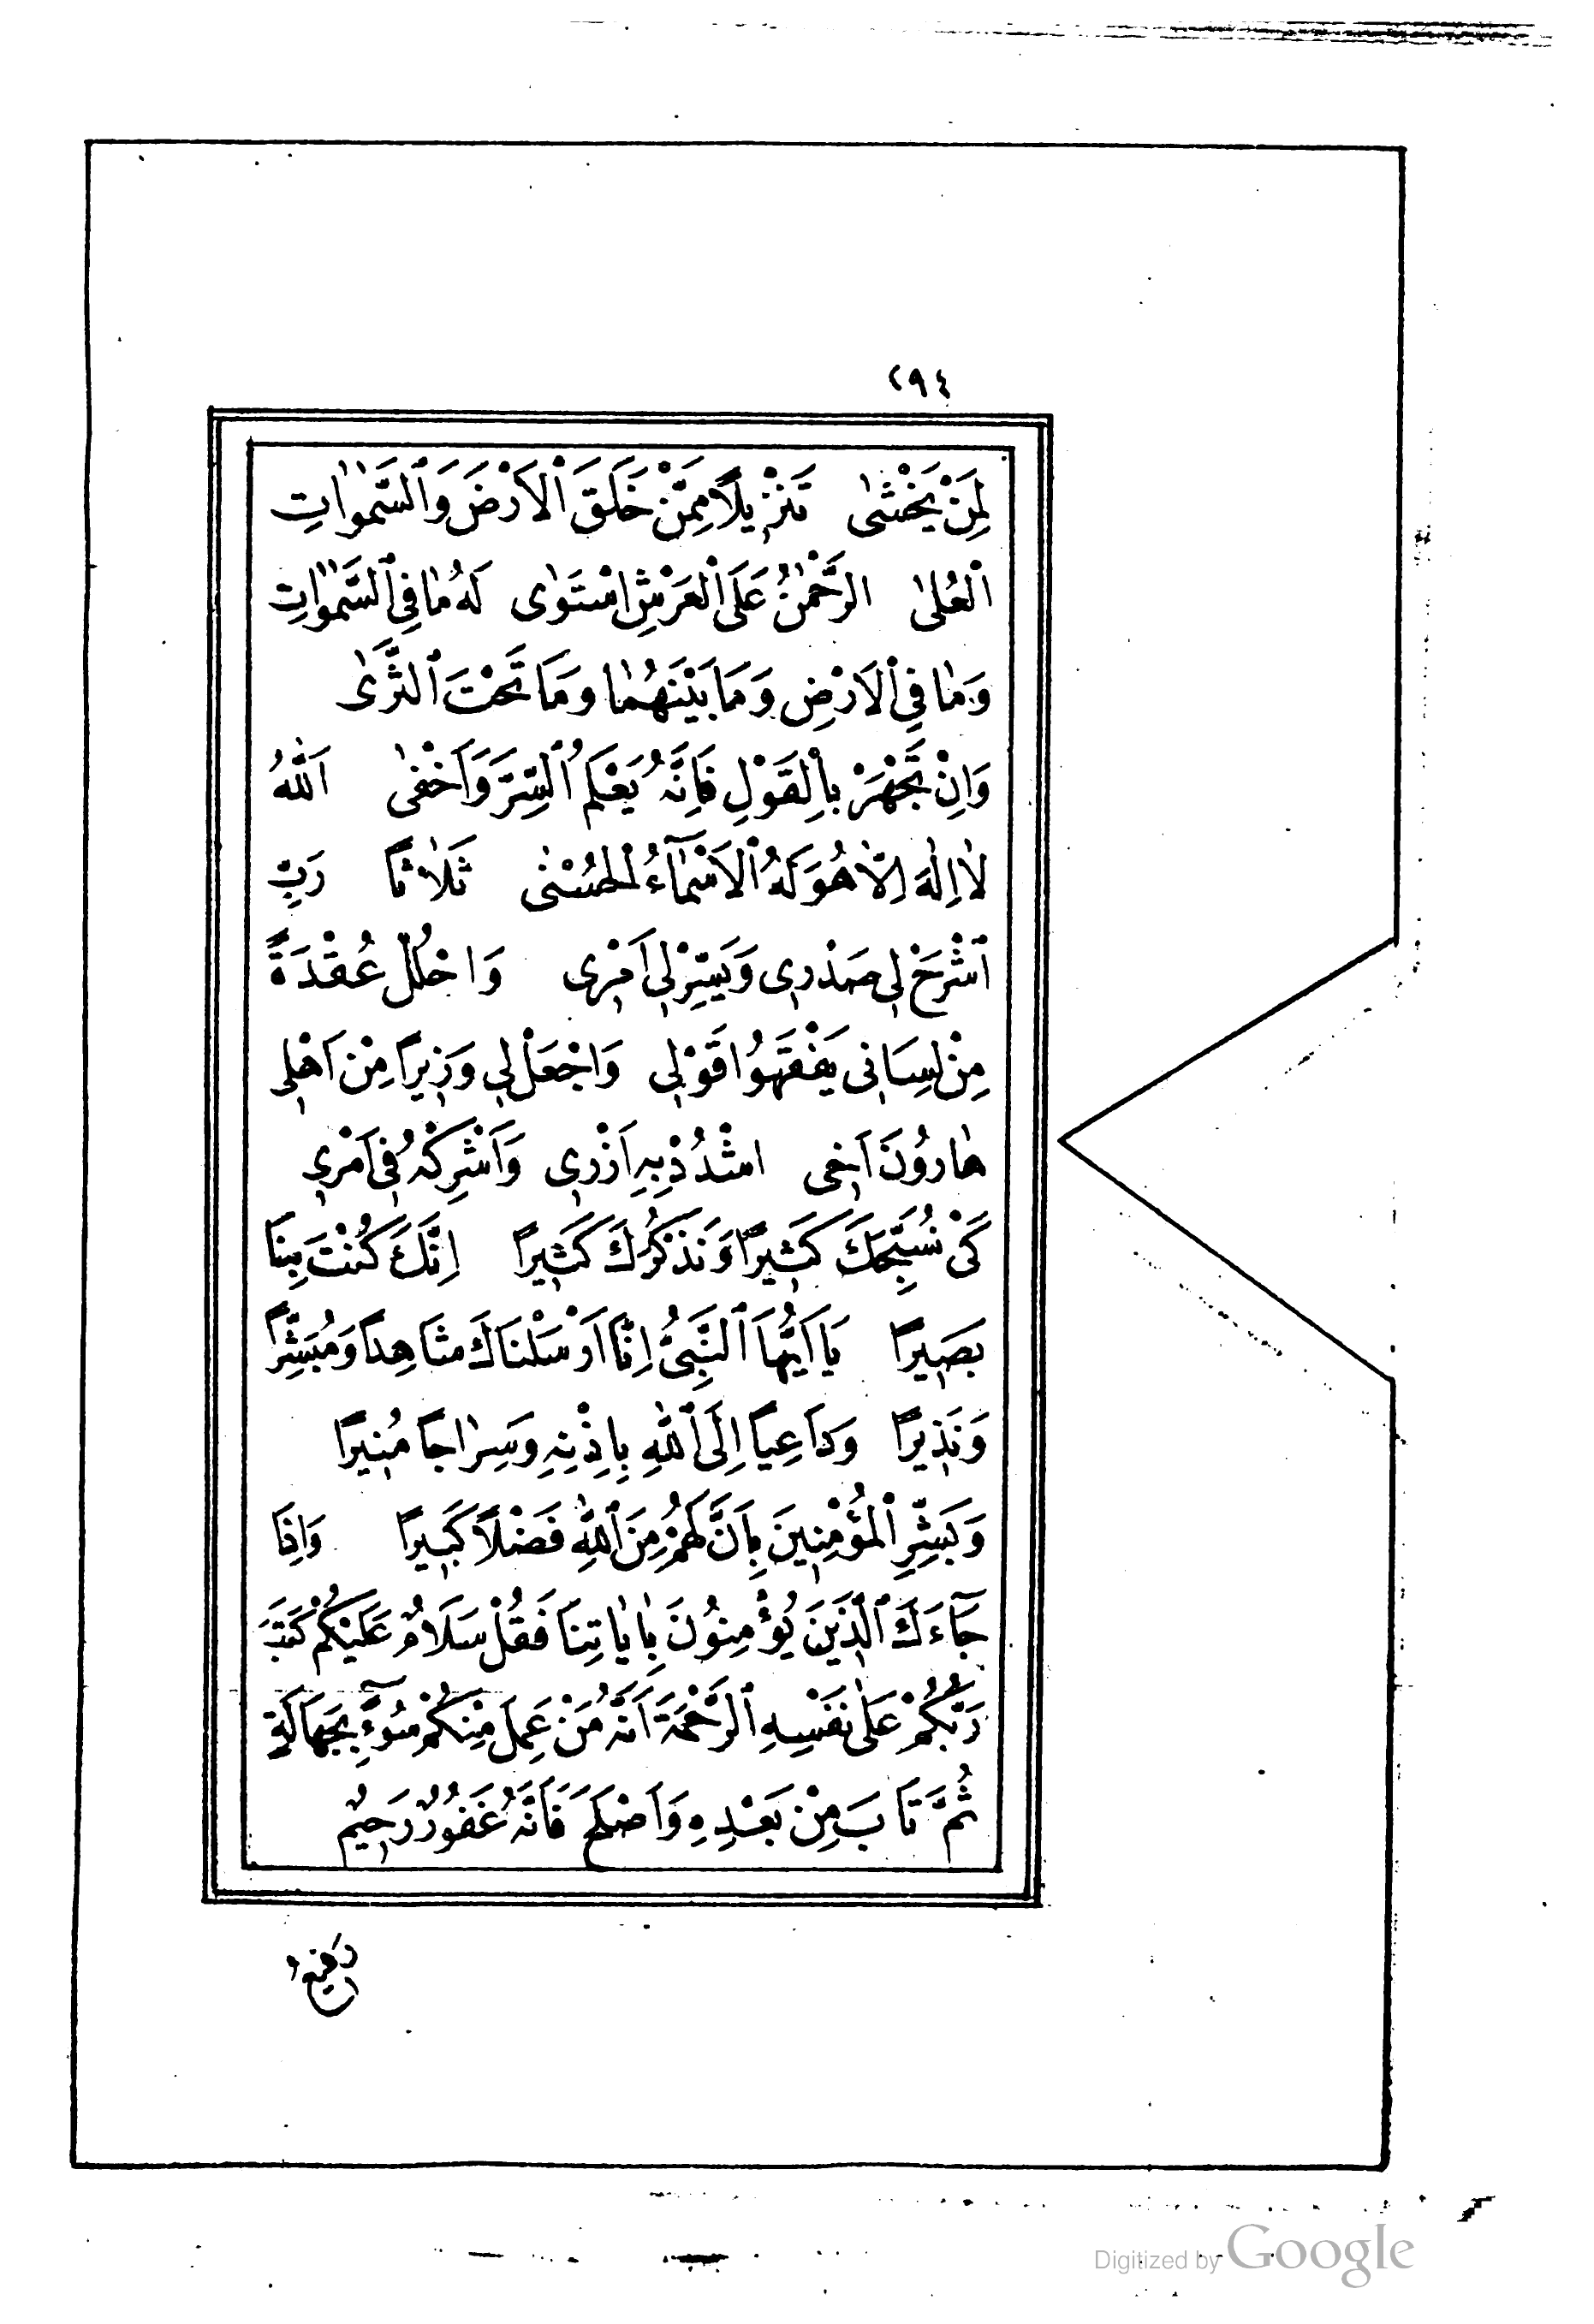 ٢٩٤
لِمَنْ يَخْشٰى تَنْزِيلًا مِمَّنْ خَلَقَ ٱلْاَرْضَ وَٱلسَّمٰوٰاتِ
اْلعُلىٰ الرَّحْمٰنُ عَلَى ٱلْعَرْشِ اسْتَوٰى لَهُ مٰا فِى ٱلسَّمٰوٰاتِ
وَمٰا فِى ٱلْاَرْضِ وَمَا بَيْنَهُمٰا وَمَا تَحْتَ ٱلثَّرٰى
وَاِنْ تَجْهَرْ بِاْلقَوْلِ فَاِنَّهُ يَعْلَمُ ٱلسِّرَّ وَاَخْفىٰ اَللّٰهُ
لٰا اِلٰهَ اِلّٰا هُوَ لَهُ ٱلْاَسْمٰآءُ اْلحُسْنٰى ثَلٰاثًا رَبِّ
ٱشْرَحْ لِى صَدْرِى وَيَسِّرْ لِى اَمْرِى وَاحْلُلْ عُقْدَةً
مِنْ لِسَانِى يَفْقَهُوا قَوْلِى وَاجْعَلْ لِى وَزِيرًا مِنْ اَهْلِى
هٰارُونَ اَخِى اشْدُدْ بِهِ اَزْرِى وَاَشْرِكْهُ فِى اَمْرِى
كَىْ نُسَبِّحَكَ كَثِيرًا وَنَذْكُرَكَ كَثِيرًا اِنَّكَ كُنْتَ بِنَا
بَصِيرًا يَا اَيُّهَا ٱلنَّبِىُّ اِنَّا اَرْسَلْنَاكَ شَاهِدًا وَمُبَشِّرًا
وَنَذِيرًا وَدَاعِيًا اِلَى ٱللّٰهِ بِاِذْنِهِ وَسِرٰاجًا مُنِيرًا
وَبَشِّرِ ٱلْمُؤْمِنِينَ بِاَنَّ لَهُمْ مِنَ ٱللّٰهِ فَضْلًا كَبِيرًا وَاِذَا
جَآءَكَ ٱلَّذِينَ يُؤْمِنُونَ بِاٰيٰاتِنَا فَقُلْ سَلَامٌ عَلَيْكُمْ كَتَبَ
رَبُّكُمْ عَلىٰ نَفْسِهِ ٱلرَّحْمَةَ اَنَّهُ مَنْ عَمِلَ مِنْكُمْ سُوٓءً بِجَهَالَةٍ
ثُمَّ تَابَ مِنْ بَعْدِهِ وَاَصْلَحَ فَاَنَّهُ غَفُورٌ رَحِيمٌ
Digitized by Google